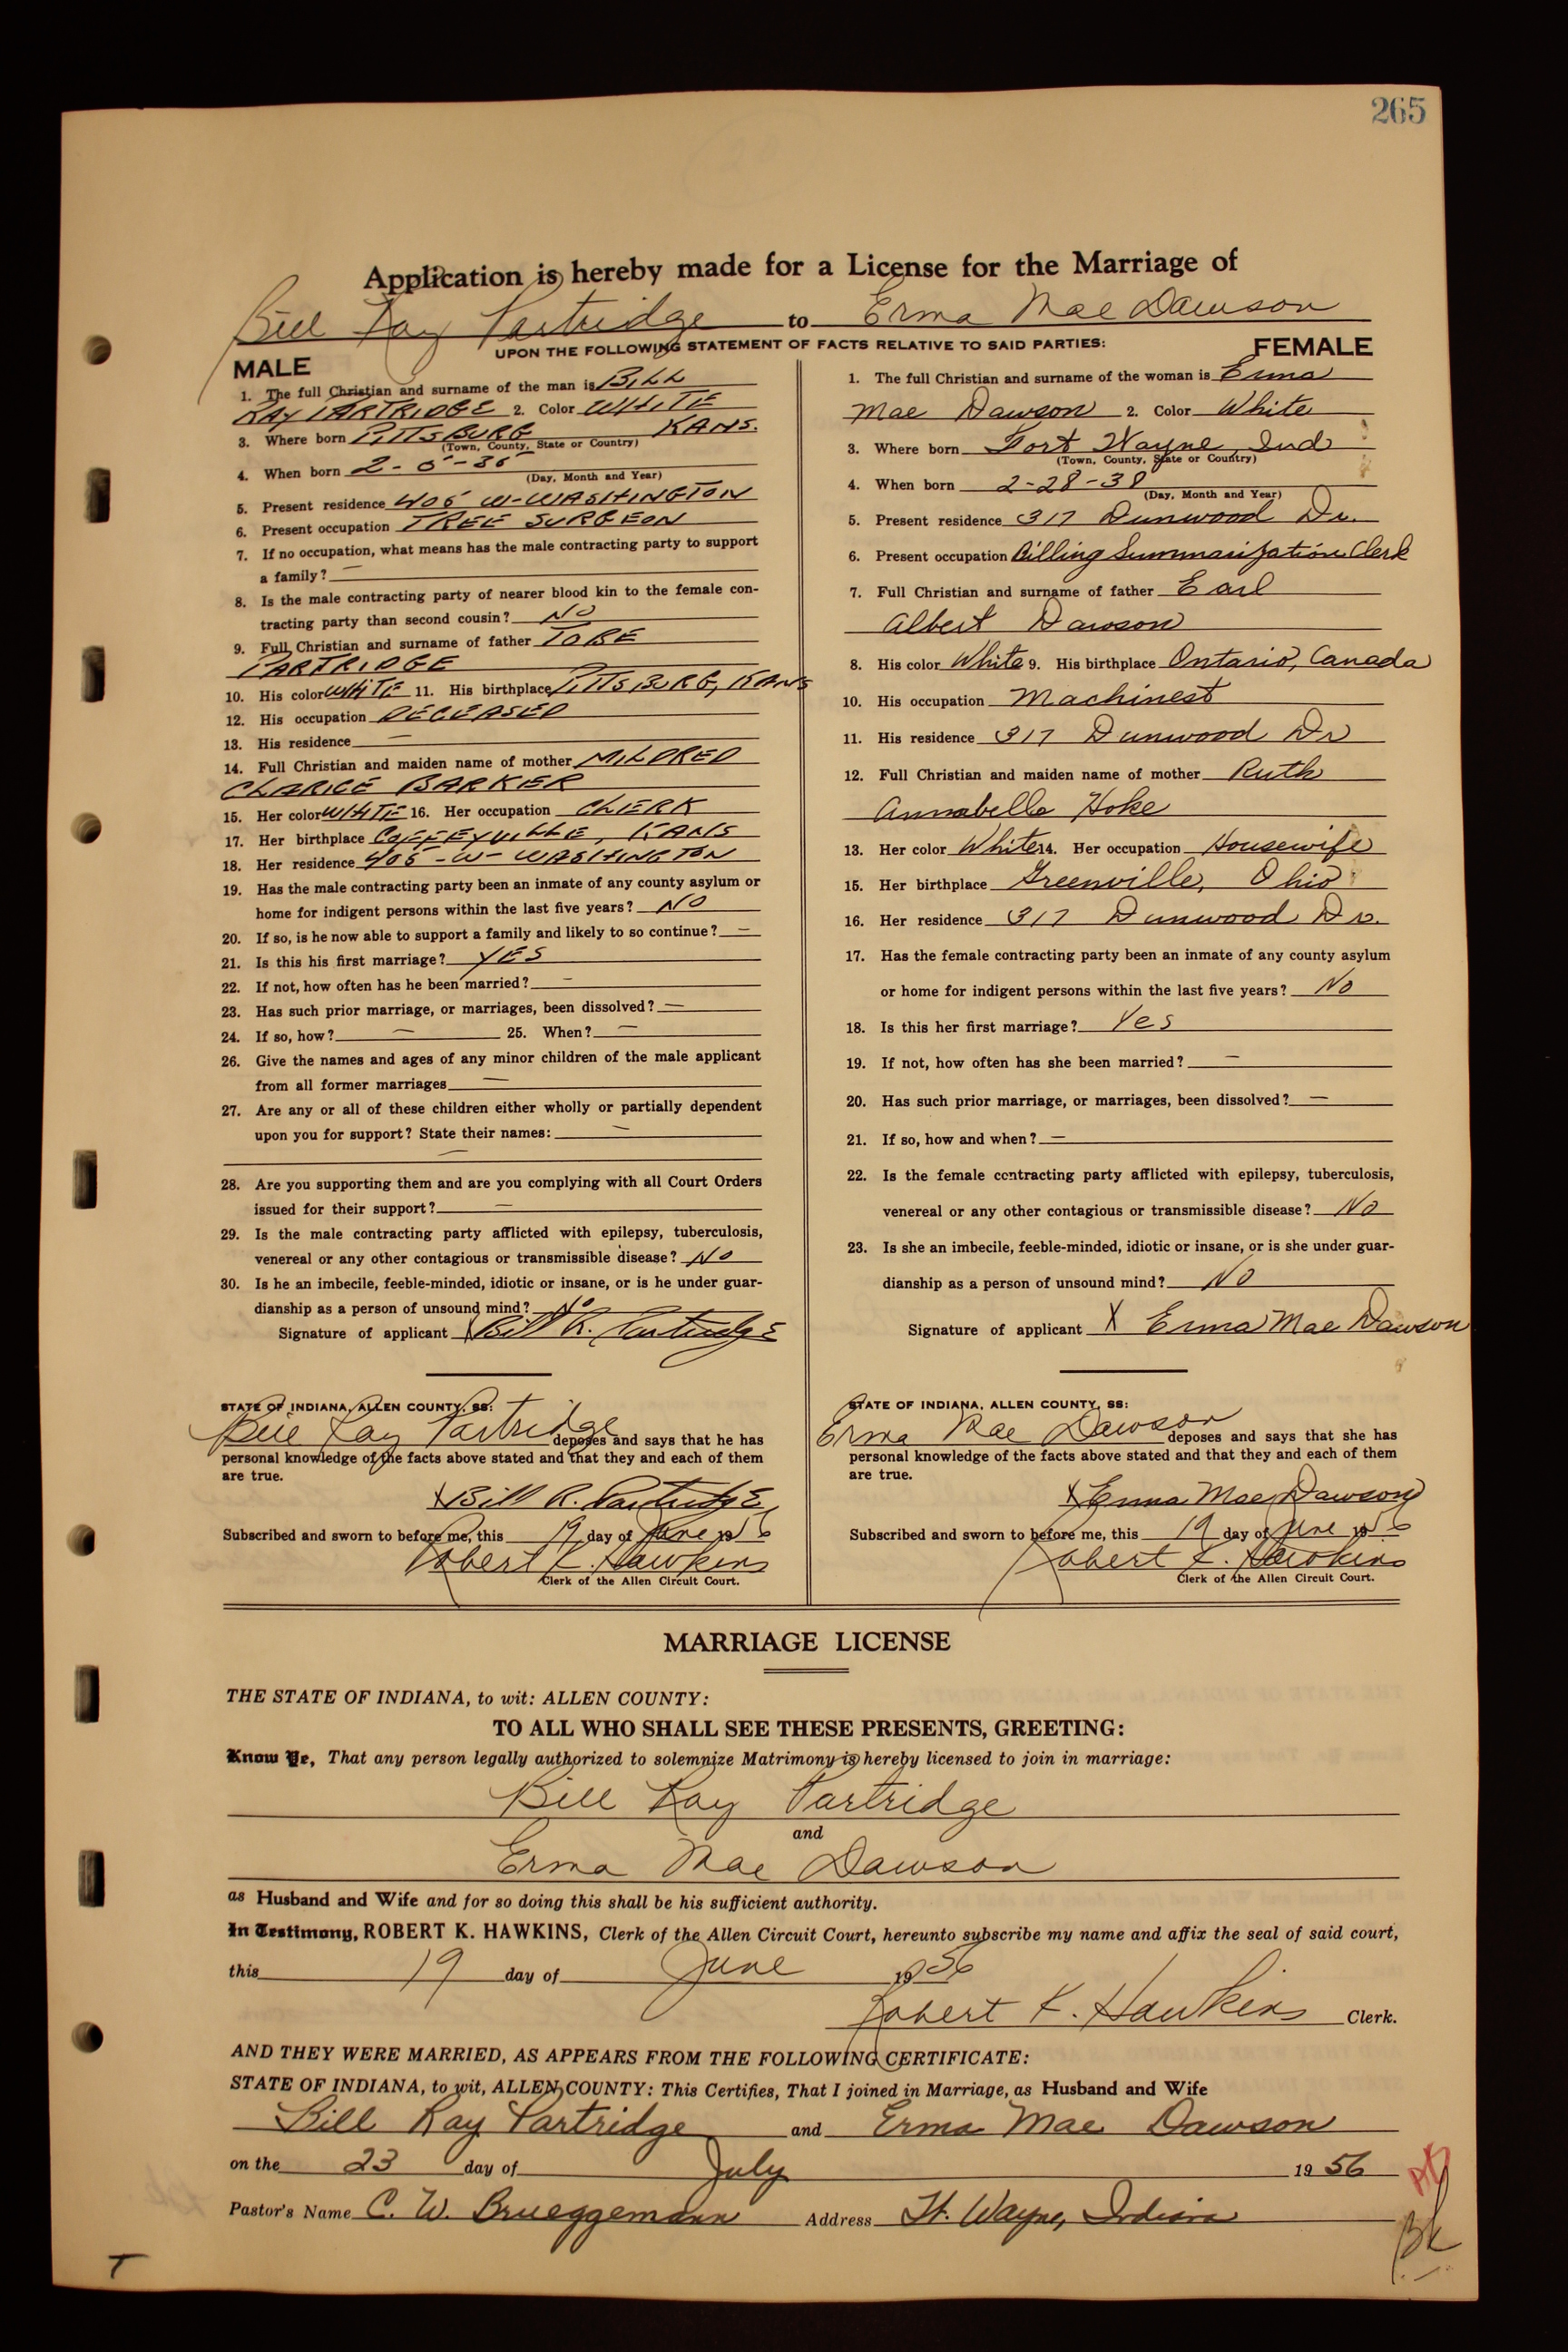 265
Application is hereby made for a License for the Marriage of
Bill Ray Partridge to Erma Mae Dawson
UPON THE FOLLOWING STATEMENT OF FACTS RELATIVE TO SAID PARTIES:
MALE
1. The full Christian and surname of the man is BILL
RAY PARTRIDGE 2. Color WHITE
3. Where born PITTSBURG KANS.
(Town, County, State or Country)
4. When born 2-5-35
(Day, Month and Year)
5. Present residence 405 W-WASHINGTON
6. Present occupation TREE SURGEON
7. If no occupation, what means has the male contracting party to support
a family? —
8. Is the male contracting party of nearer blood kin to the female con-
tracting party than second cousin? NO
9. Full Christian and surname of father TOBE
PARTRIDGE
10. His color WHITE 11. His birthplace PITTSBURG, KANS
12. His occupation DECEASED
13. His residence —
14. Full Christian and maiden name of mother MILDRED
CLARICE BARKER
15. Her color WHITE 16. Her occupation CLERK
17. Her birthplace COFFEYVILLE, KANS
18. Her residence 405-W-WASHINGTON
19. Has the male contracting party been an inmate of any county asylum or
home for indigent persons within the last five years? NO
20. If so, is he now able to support a family and likely to so continue? —
21. Is this his first marriage? YES
22. If not, how often has he been married? —
23. Has such prior marriage, or marriages, been dissolved? —
24. If so, how? — 25. When? —
26. Give the names and ages of any minor children of the male applicant
from all former marriages —
27. Are any or all of these children either wholly or partially dependent
upon you for support? State their names: —
—
28. Are you supporting them and are you complying with all Court Orders
issued for their support? —
29. Is the male contracting party afflicted with epilepsy, tuberculosis,
venereal or any other contagious or transmissible disease? No
30. Is he an imbecile, feeble-minded, idiotic or insane, or is he under guar-
dianship as a person of unsound mind? No
Signature of applicant X Bill R. Partridge
STATE OF INDIANA, ALLEN COUNTY, SS:
Bill Ray Partridge deposes and says that he has
personal knowledge of the facts above stated and that they and each of them
are true.
X Bill R. Partridge
Subscribed and sworn to before me, this 19 day of June 1956
Robert K. Hawkins
Clerk of the Allen Circuit Court.
FEMALE
1. The full Christian and surname of the woman is Erma
Mae Dawson 2. Color White
3. Where born Fort Wayne, Ind
(Town, County, State or Country)
4. When born 2-28-38
(Day, Month and Year)
5. Present residence 317 Dunwood Dr.
6. Present occupation Billing Summarization Clerk
7. Full Christian and surname of father Earl
Albert Dawson
8. His color White 9. His birthplace Ontario, Canada
10. His occupation Machinest
11. His residence 317 Dunwood Dr
12. Full Christian and maiden name of mother Ruth
Annabelle Hoke
13. Her color White 14. Her occupation Housewife
15. Her birthplace Greenville, Ohio
16. Her residence 317 Dunwood Dr.
17. Has the female contracting party been an inmate of any county asylum
or home for indigent persons within the last five years? No
18. Is this her first marriage? Yes
19. If not, how often has she been married? —
20. Has such prior marriage, or marriages, been dissolved? —
21. If so, how and when? —
22. Is the female contracting party afflicted with epilepsy, tuberculosis,
venereal or any other contagious or transmissible disease? No
23. Is she an imbecile, feeble-minded, idiotic or insane, or is she under guar-
dianship as a person of unsound mind? No
Signature of applicant X Erma Mae Dawson
STATE OF INDIANA, ALLEN COUNTY, SS:
Erma Mae Dawson deposes and says that she has
personal knowledge of the facts above stated and that they and each of them
are true.
X Erma Mae Dawson
Subscribed and sworn to before me, this 19 day of June 1956
Robert K. Hawkins
Clerk of the Allen Circuit Court.
MARRIAGE LICENSE
THE STATE OF INDIANA, to wit: ALLEN COUNTY:
TO ALL WHO SHALL SEE THESE PRESENTS, GREETING:
Know Ye, That any person legally authorized to solemnize Matrimony is hereby licensed to join in marriage:
Bill Ray Partridge
and
Erma Mae Dawson
as Husband and Wife and for so doing this shall be his sufficient authority.
In Testimony, ROBERT K. HAWKINS, Clerk of the Allen Circuit Court, hereunto subscribe my name and affix the seal of said court,
this 19 day of June 1956
Robert K. Hawkins Clerk.
AND THEY WERE MARRIED, AS APPEARS FROM THE FOLLOWING CERTIFICATE:
STATE OF INDIANA, to wit, ALLEN COUNTY: This Certifies, That I joined in Marriage, as Husband and Wife
Bill Ray Partridge and Erma Mae Dawson
on the 23 day of July 1956
Pastor's Name C. W. Brueggemann Address Ft. Wayne, Indiana
T